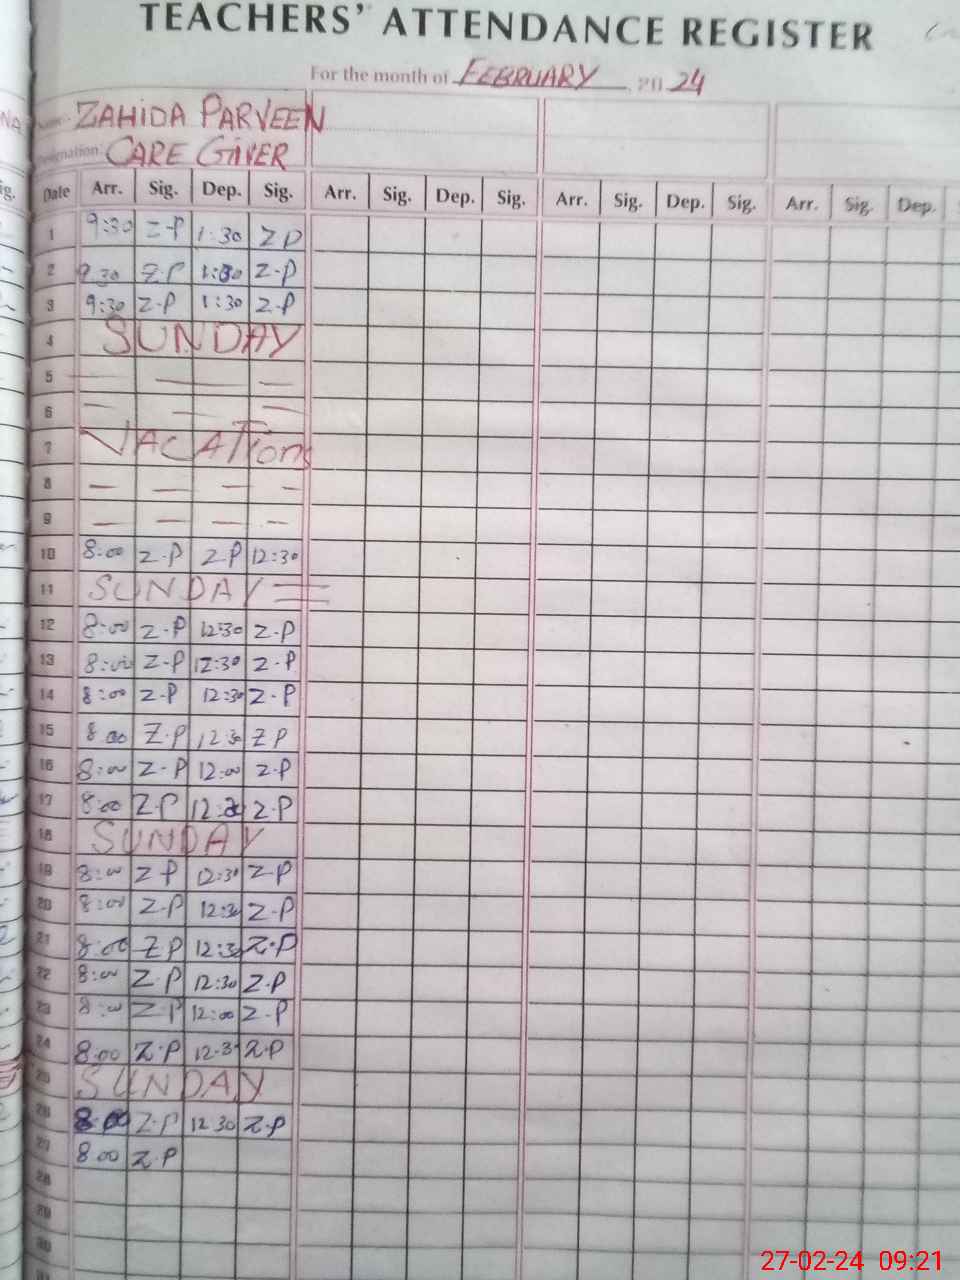 TEACHERS' ATTENDANCE REGISTER
For the month of FEBRUARY, 2024
Name:- ZAHIDA PARVEEN
Designation: CARE GIVER
Date Arr. Sig. Dep. Sig. Arr. Sig. Dep. Sig. Arr. Sig. Dep. Sig. Arr. Sig. Dep.
1 9:30 Z-P 1:30 Z P
2 9.30 Z.P 1:30 Z-P
3 9:30 Z.P 1:30 Z.P
4 SUNDAY
5 — — —
6 — — —
7 VACATIONS
8 — — — —
9 — — — —
10 8:00 Z.P Z.P 12:30
11 SUNDAY
12 8:00 Z.P 12:30 Z.P
13 8:00 Z-P 12:30 Z.P
14 8:00 Z-P 12:30 Z-P
15 8 00 Z.P 12:30 Z P
16 8:00 Z-P 12:00 Z.P
17 8:00 Z.P 12:30 Z.P
18 SUNDAY
19 8:00 Z P 12:30 Z.P
20 8:00 Z.P 12:30 Z.P
21 8:00 Z.P 12:30 Z.P
22 8:00 Z.P 12:30 Z.P
23 8:00 Z.P 12:00 Z.P
24 8.00 Z.P 12.3 Z.P
25 SUNDAY
26 8:00 Z.P 12 30 Z.P
27 8 00 Z.P
28
29
30
27-02-24 09:21